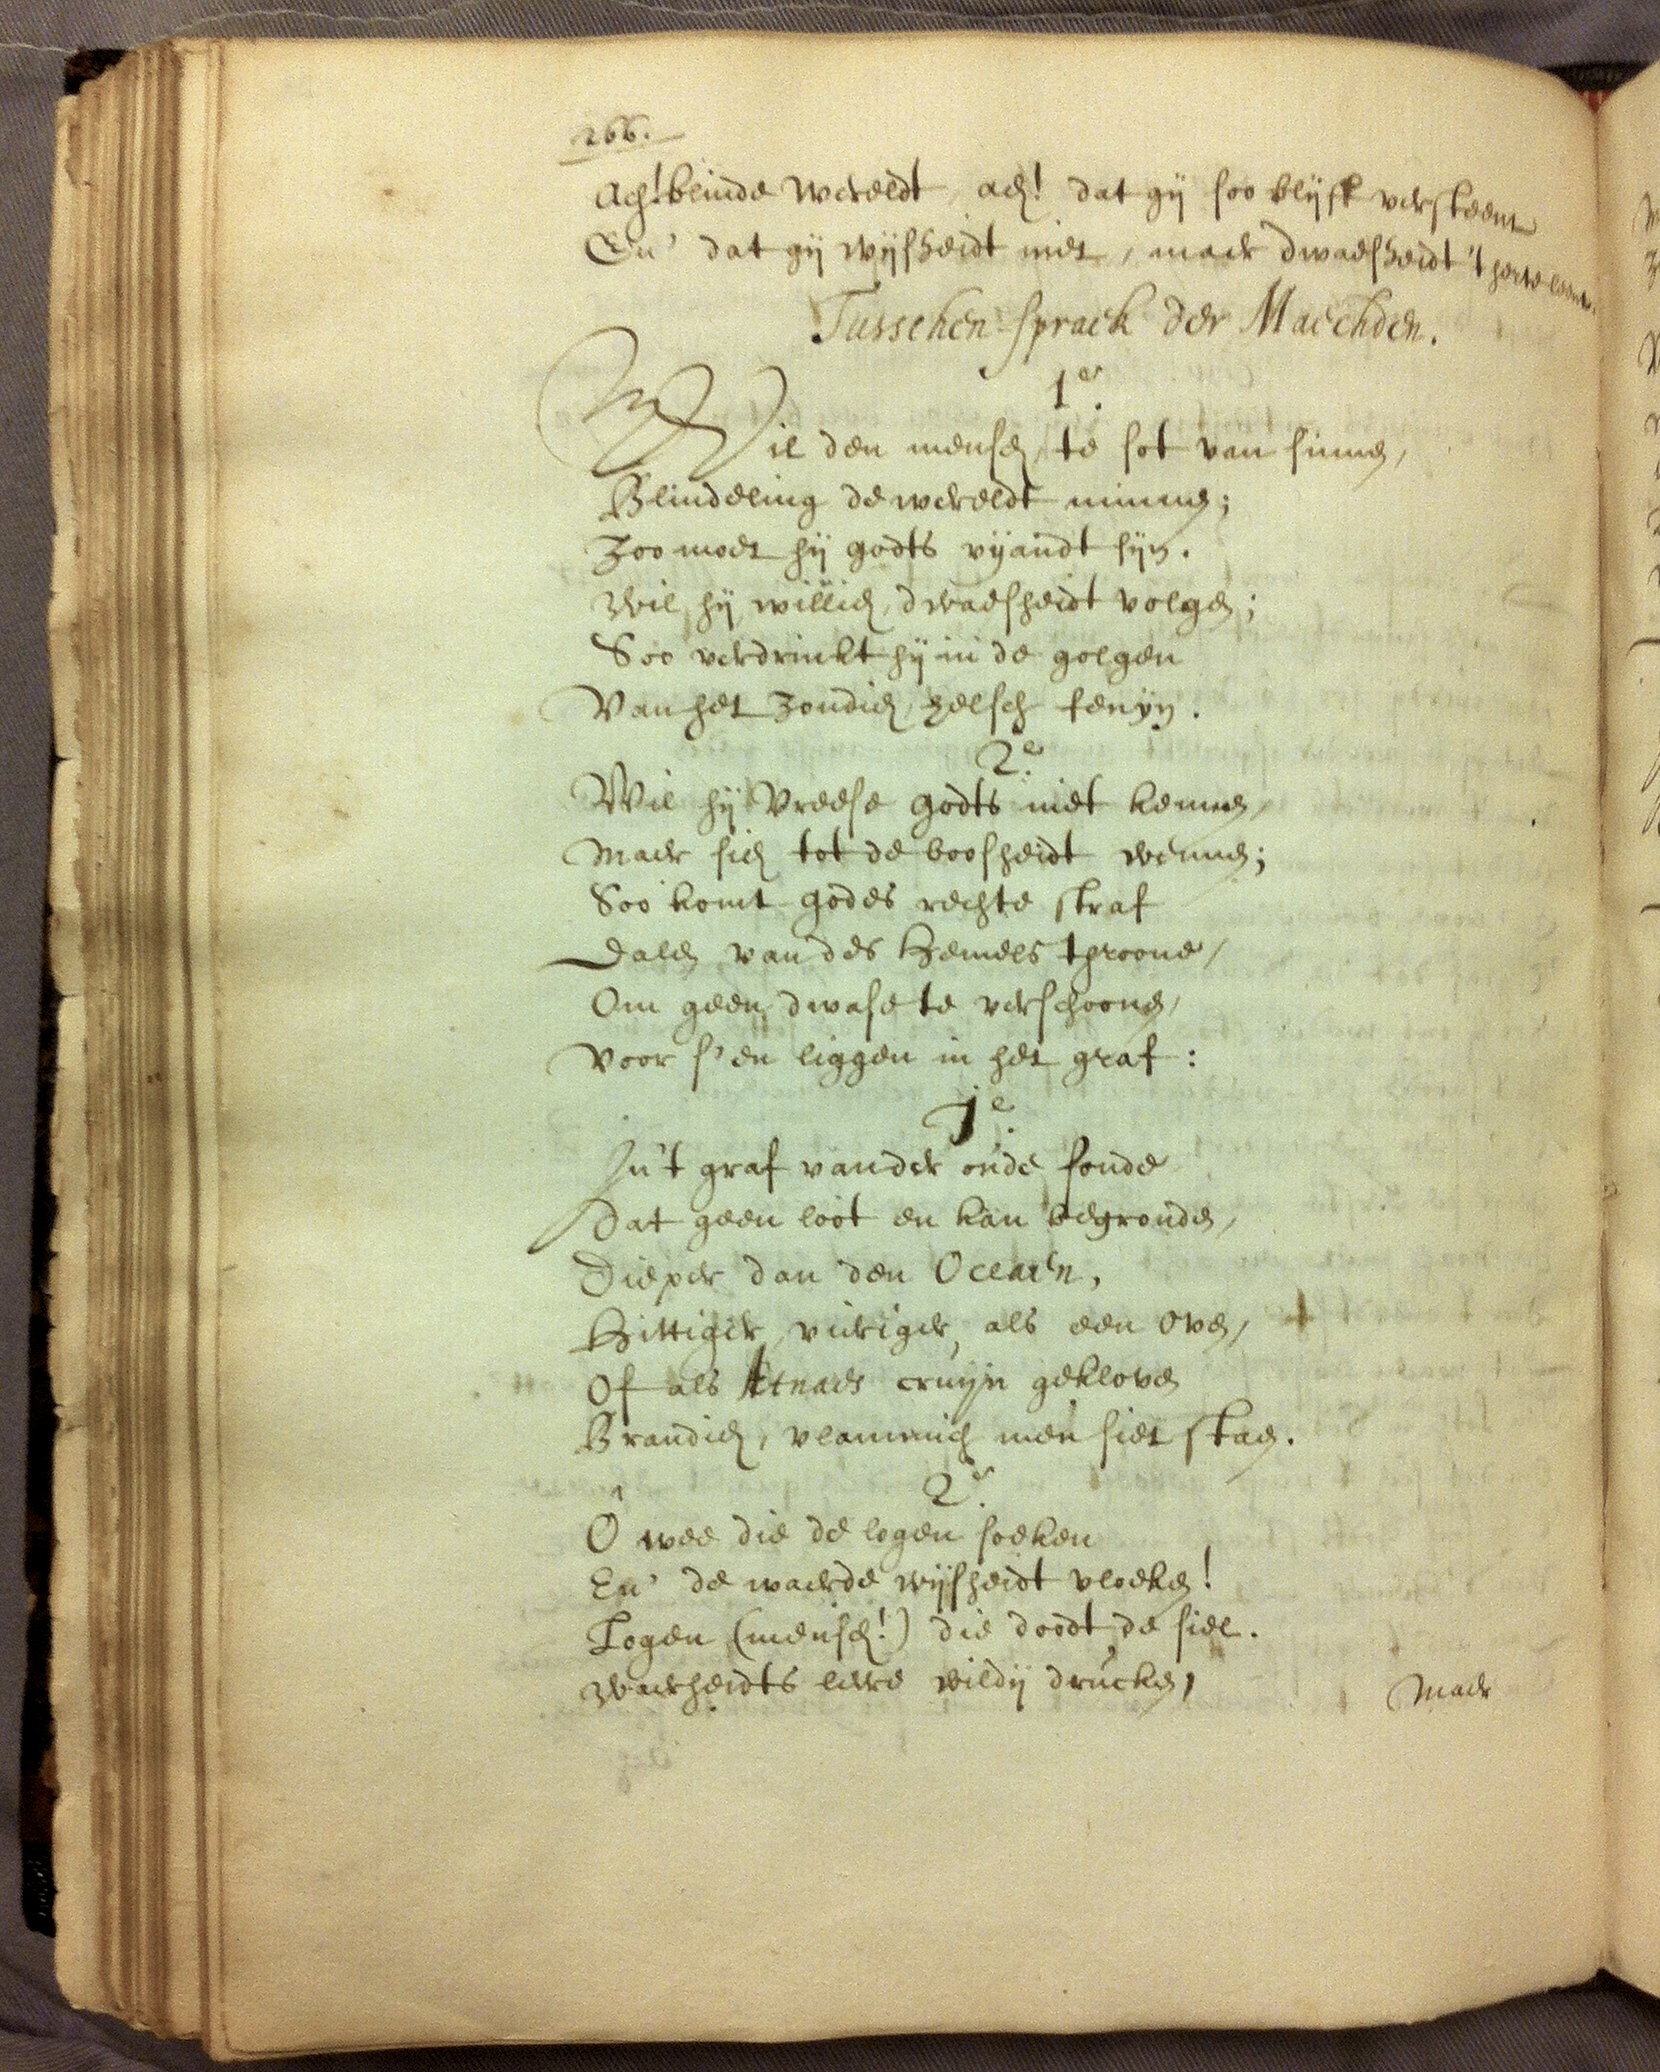 266.
Ach! blinde wereldt, ach! dat gij soo blijft versteent
En' dat gij wijsheidt niet, maer dwaesheidt 't herte leent.
Tusschen-spraek der Maechden.
1e.
Wil den mensch, te sot van sinnen,
Blindeling de wereldt minnen;
Zoo moet hij godts vijandt sijn.
Wil hij willich, dwaesheidt volgen;
Soo verdrinkt hij in de golgen
Van het zondich, helsch fenijn.
2e.
Wil hij vreese godts niet kennen,
Maer sich tot de boosheidt wennen;
Soo komt godes rechte straf
Dalen van des hemels throone,
Om geen dwase te verschoonen,
Voor s' en liggen in het graf:
1e.
In 't graf van der oude sonde
Dat geen loot en kan begronden,
Dieper dan den Oceaen,
Hittiger, vieriger, als een oven,
Of als Etnaes cruijn gekloven
Brandich, vlammich men siet staen.
2e.
Ô wee die de logen soeken
En' de waerde wijsheidt vloeken!
Logen (mensch!) die doodt de siel.
Waerheidts leere wildij drucken,
Maer